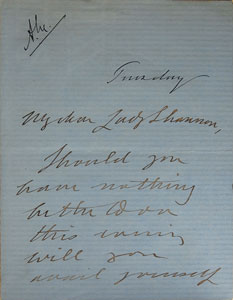 Tuesday
My dear Lady Shannon,
Should you
have nothing
better to do on
this evening
will you
avail yourself